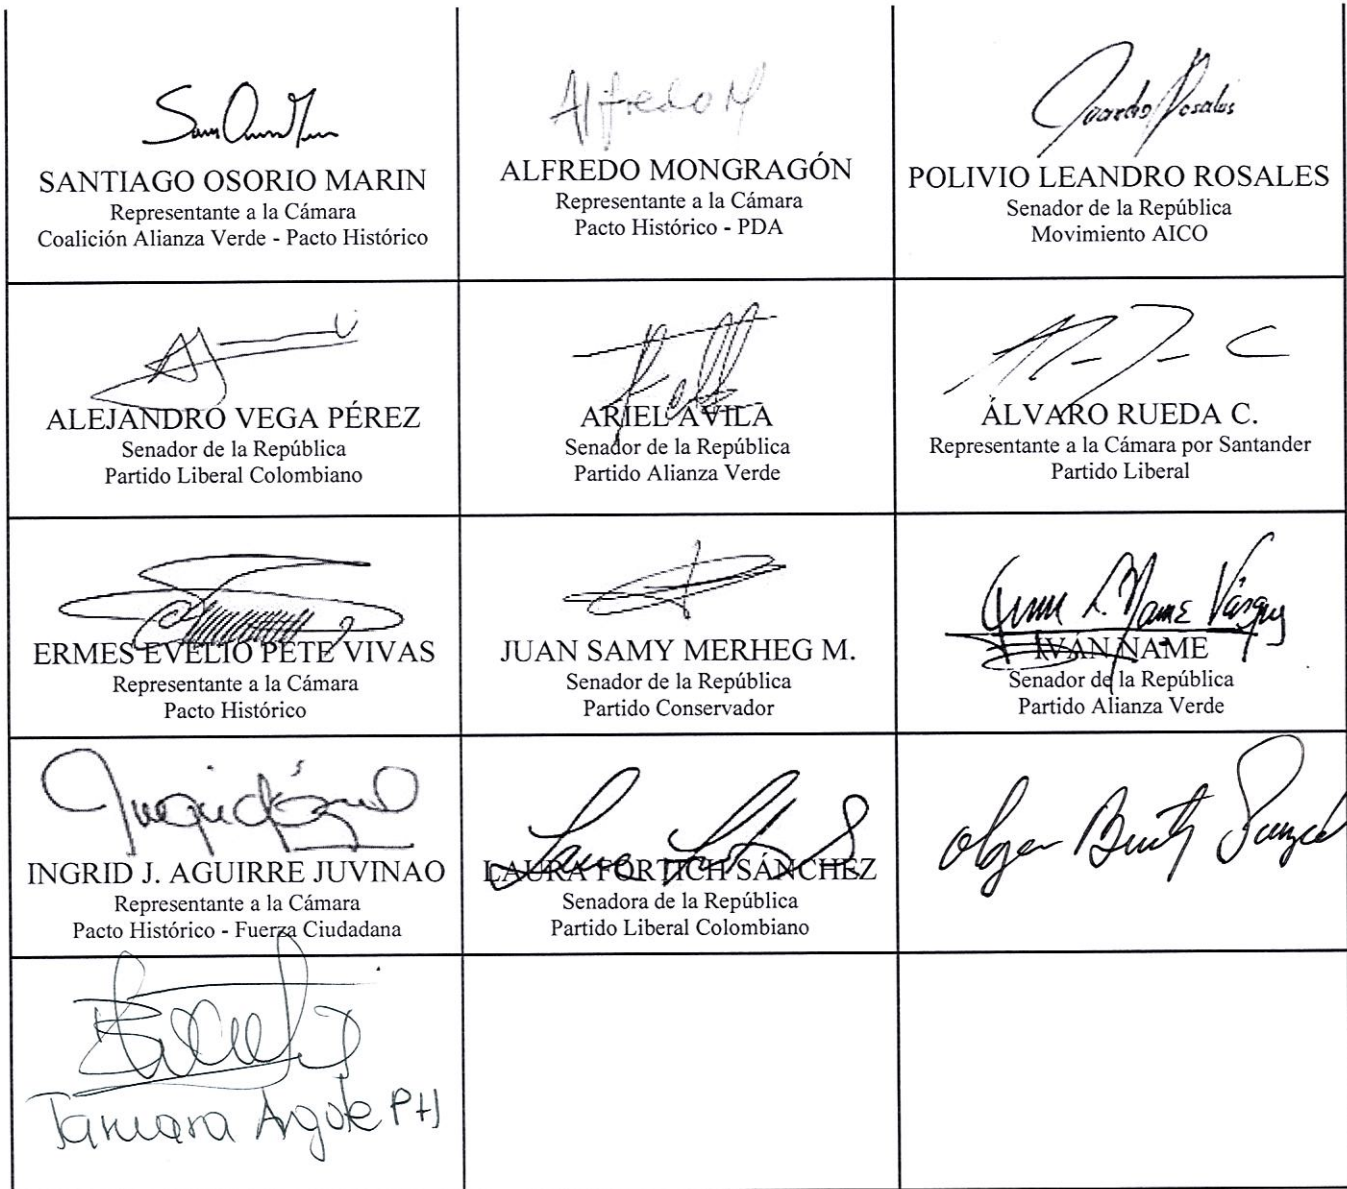 SANTIAGO OSORIO MARIN
Representante a la Cámara
Coalición Alianza Verde - Pacto Histórico
Alfredo M
ALFREDO MONGRAGÓN
Representante a la Cámara
Pacto Histórico - PDA
Rosales
POLIVIO LEANDRO ROSALES
Senador de la República
Movimiento AICO
ALEJANDRO VEGA PÉREZ
Senador de la República
Partido Liberal Colombiano
ARIEL AVILA
Senador de la República
Partido Alianza Verde
ÁLVARO RUEDA C.
Representante a la Cámara por Santander
Partido Liberal
ERMES EVELIO PETE VIVAS
Representante a la Cámara
Pacto Histórico
JUAN SAMY MERHEG M.
Senador de la República
Partido Conservador
Name Vásquez
IVÁN NAME
Senador de la República
Partido Alianza Verde
INGRID J. AGUIRRE JUVINAO
Representante a la Cámara
Pacto Histórico - Fuerza Ciudadana
LAURA FORTICH SÁNCHEZ
Senadora de la República
Partido Liberal Colombiano
Tamara Argote PH